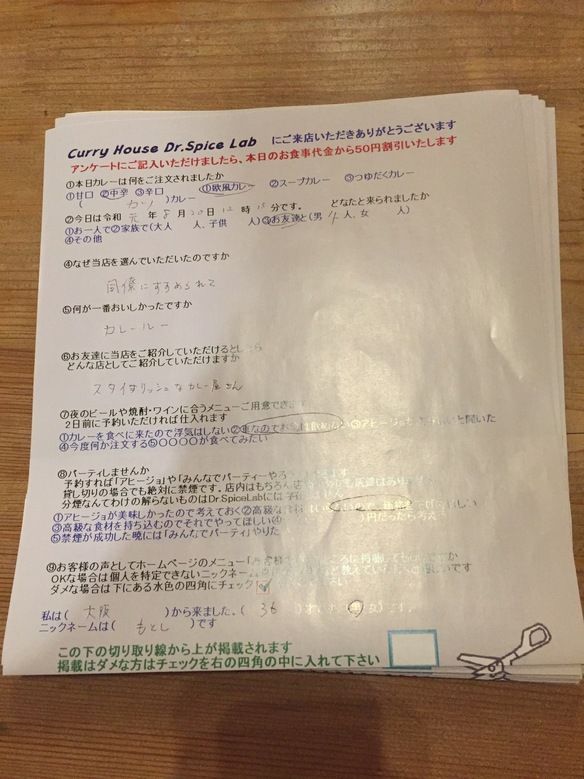 Curry House Dr.Spice Lab にご来店いただきありがとうございます
アンケートにご記入いただけましたら、本日のお食事代金から50円割引いたします
①本日カレーは何をご注文されましたか
①甘口 ②中辛 ③辛口 ①欧風カレー ②スープカレー ③つゆだくカレー
( カツ )カレー
②今日は令和 元 年 8 月 20 日 12 時 15 分です。 どなたと来られましたか
①お一人で②家族で(大人 人、子供 人)③お友達と(男 人、女 人)
④その他
④なぜ当店を選んでいただいたのですか
同僚にすすめられて
⑤何が一番おいしかったですか
カレールー
⑥お友達に当店をご紹介していただけるとしたら
どんな店としてご紹介していただけますか
スタイリッシュなカレー屋さん
⑦夜のビールや焼酎・ワインに合うメニューご用意できます
2日前に予約いただければ仕入れます
①カレーを食べに来たので浮気はしない②車なのでお酒は飲めない③アヒージョ と聞いた
④今度何か注文する⑤〇〇〇〇が食べてみたい
⑧パーティしませんか
予約すれば「アヒージョ」や「みんなでパーティー
貸し切りの場合でも絶対に禁煙です。店内はもちろん
分煙なんてわけの解らないものはDr.SpiceLabには
①アヒージョが美味しかったので考えておく②高級な食材
③高級な食材を持ち込むのでそれでやってほしい④ )円だったら考え
⑤禁煙が成功した暁には「みんなでパーティ」やりた
⑨お客様の声としてホームページのメニュー「お客様
OKな場合は個人を特定できないニックネーム
ダメな場合は下にある水色の四角にチェック
私は( 大阪 )から来ました。( 36
ニックネームは( もとし )です
この下の切り取り線から上が掲載されます
掲載はダメな方はチェックを右の四角の中に入れて下さい